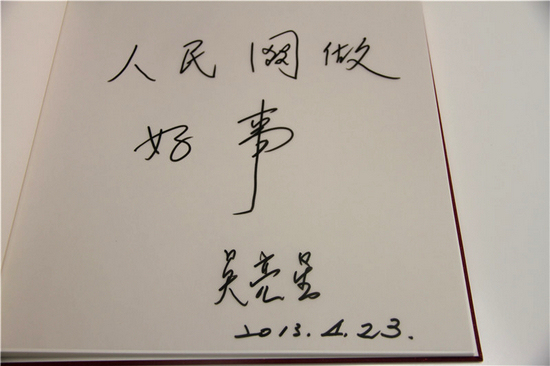 人民网做
好事
吴亮星
2013.4.23.